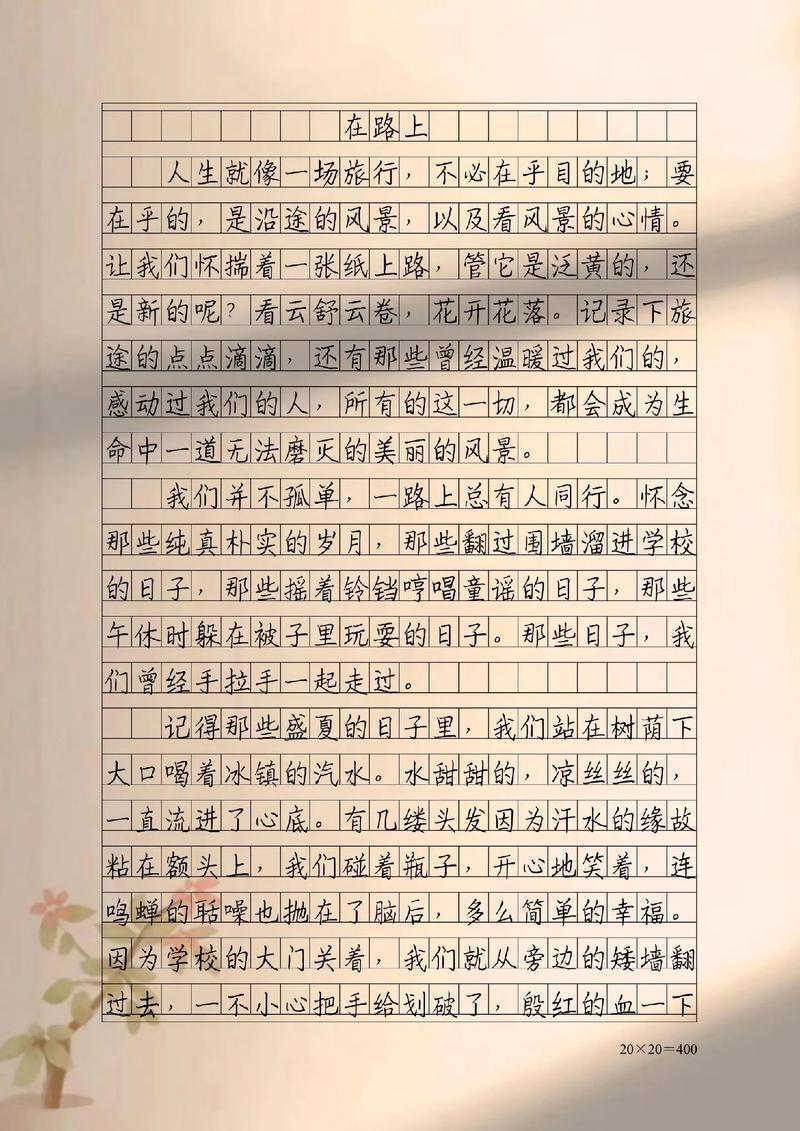 在路上
人生就像一场旅行，不必在乎目的地；要
在乎的，是沿途的风景，以及看风景的心情。
让我们怀揣着一张纸上路，管它是泛黄的，还
是新的呢？看云舒云卷，花开花落。记录下旅
途的点点滴滴，还有那些曾经温暖过我们的，
感动过我们的人，所有的这一切，都会成为生
命中一道无法磨灭的美丽的风景。
我们并不孤单，一路上总有人同行。怀念
那些纯真朴实的岁月，那些翻过围墙溜进学校
的日子，那些摇着铃铛哼唱童谣的日子，那些
午休时躲在被子里玩耍的日子。那些日子，我
们曾经手拉手一起走过。
记得那些盛夏的日子里，我们站在树荫下
大口喝着冰镇的汽水。水甜甜的，凉丝丝的，
一直流进了心底。有几缕头发因为汗水的缘故
粘在额头上，我们碰着瓶子，开心地笑着，连
鸣蝉的聒噪也抛在了脑后，多么简单的幸福。
因为学校的大门关着，我们就从旁边的矮墙翻
过去，一不小心把手给划破了，殷红的血一下
20×20＝400